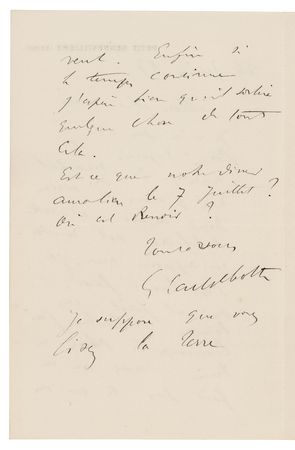 vent. Enfin si
le temps continue
j'espère bien qu'il sortira
quelque chose de tout
cela.
Est ce que notre diner
aura lieu le 7 Juillet ?
Où est Renoir ?
Tout à vous
G Caillebotte
Je suppose que vous
lisez la Terre